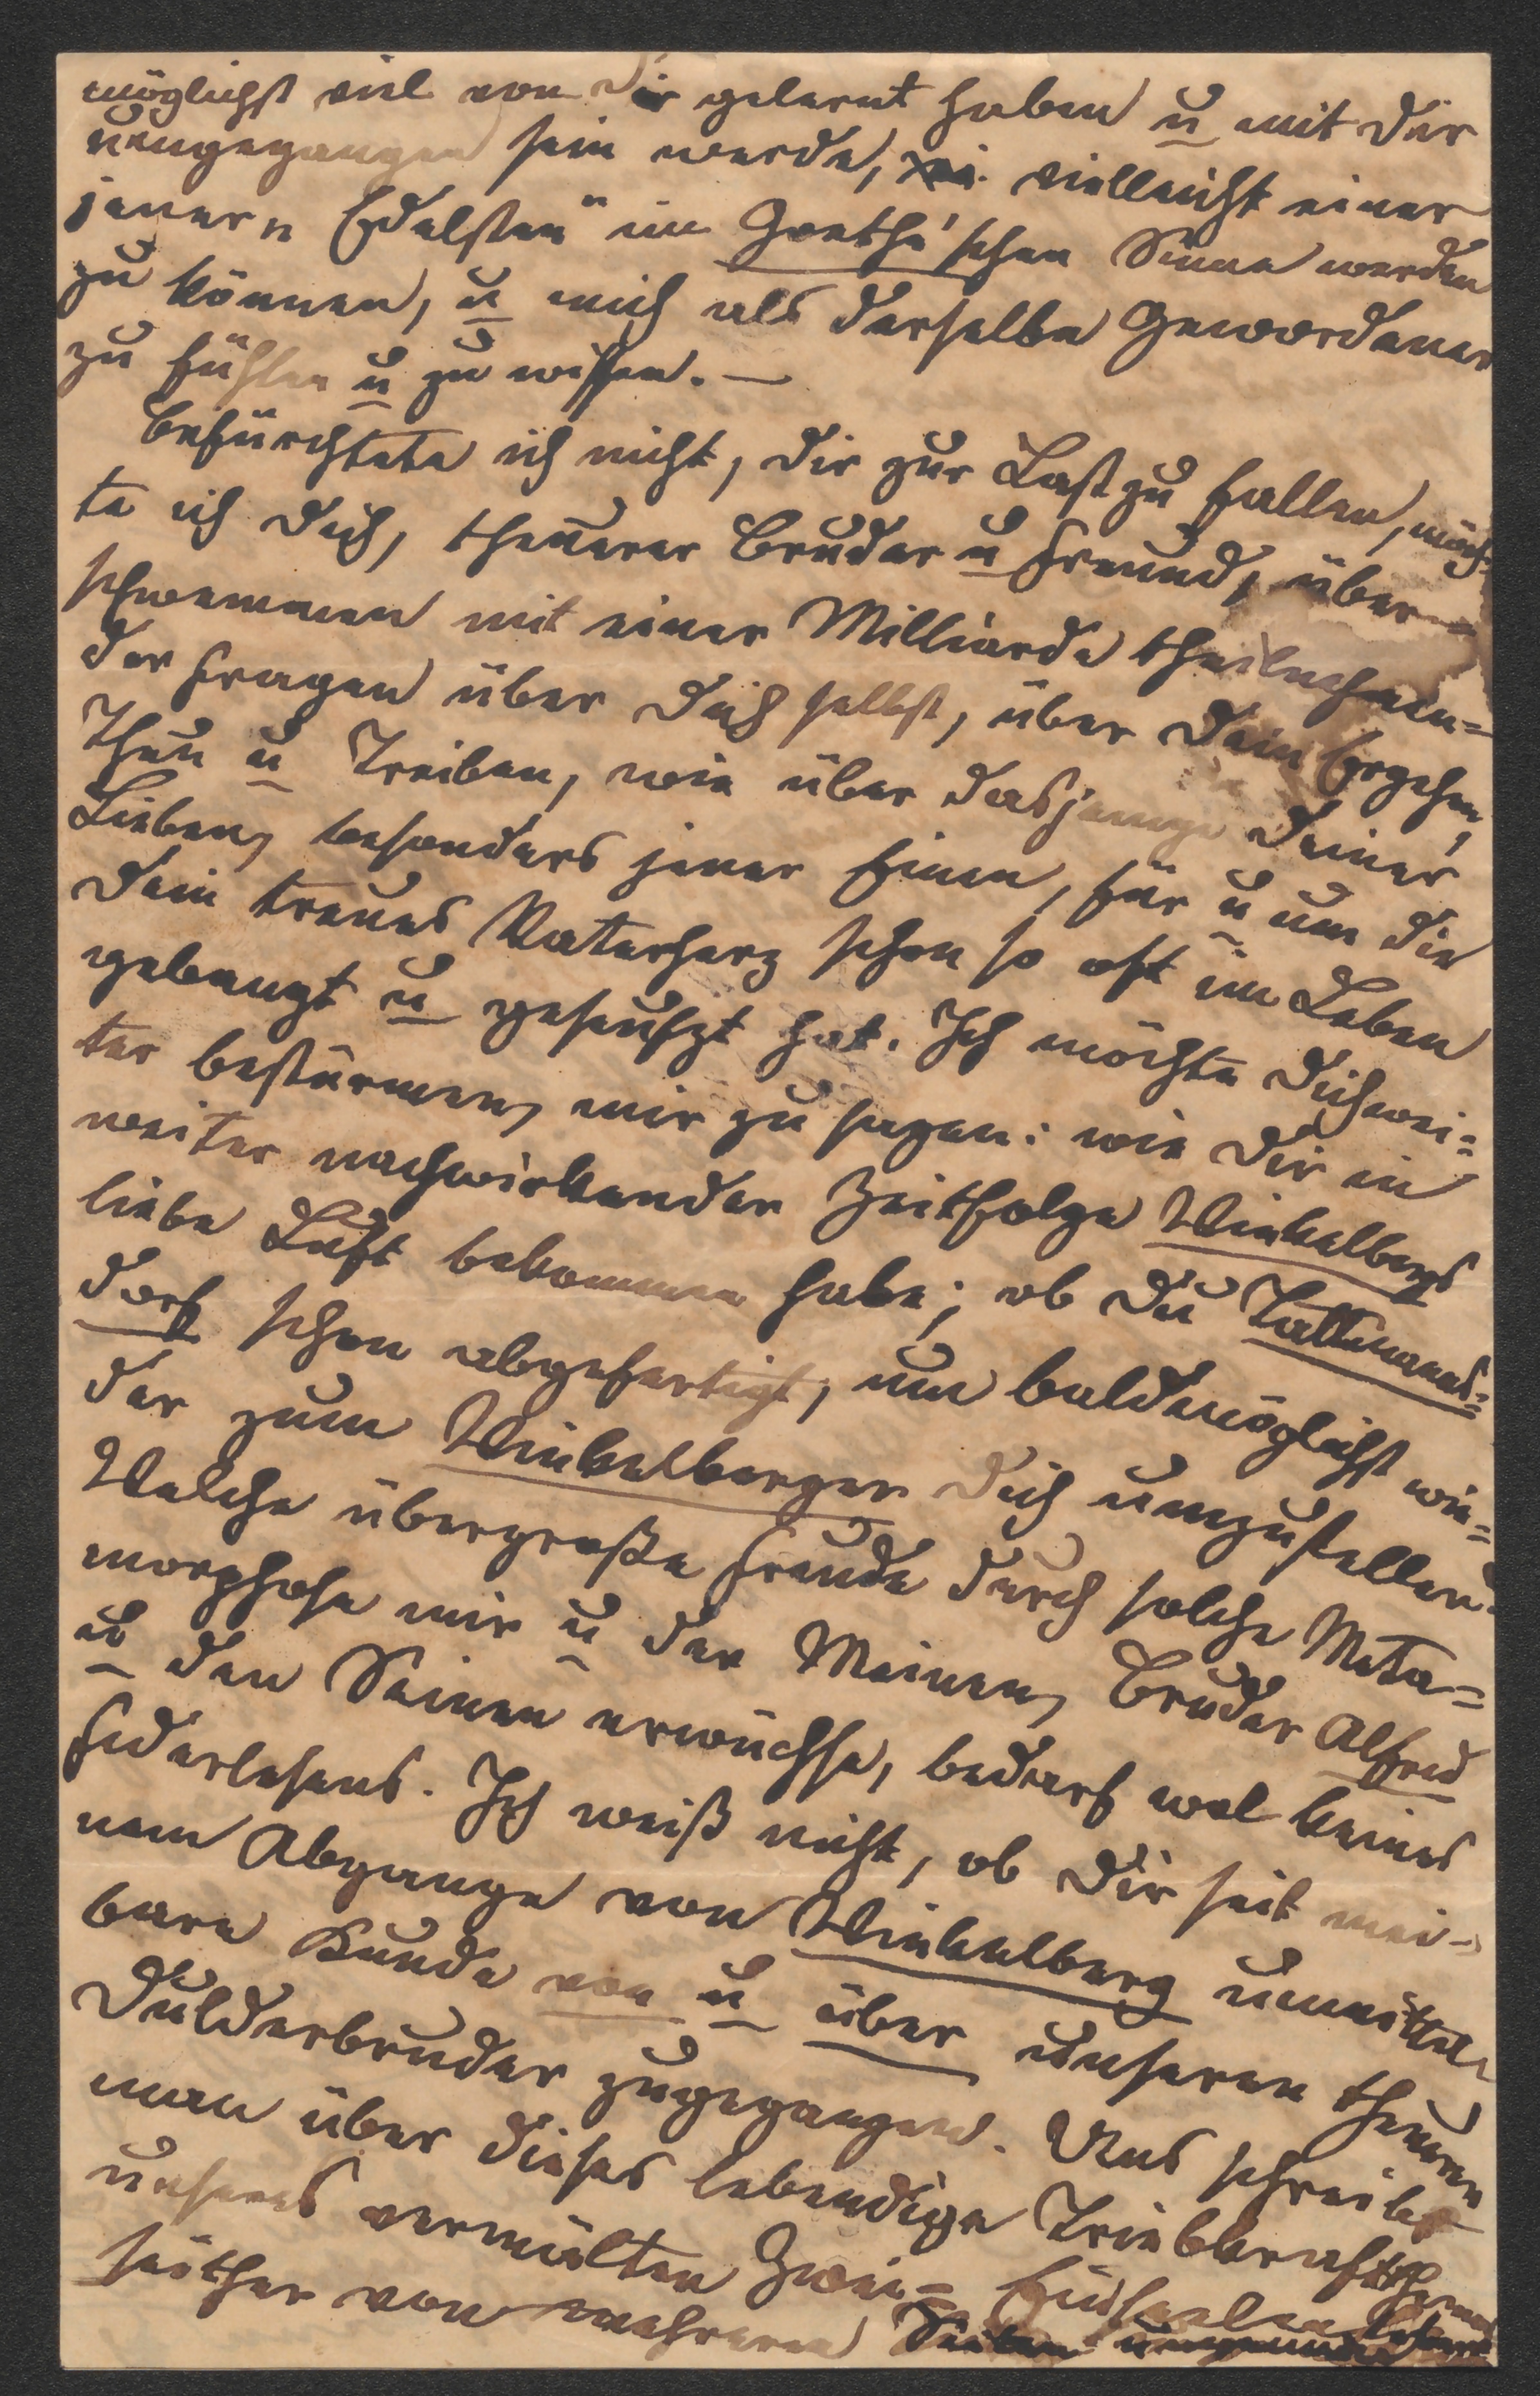 möglichst viel von Dir gelernt haben u mit Dir
umgegangen sein werde, vielleicht einer
jener „Edelsten" im Goethe'schen Sinne werden
zu können, u mich als derselbe Gewordener
zu fühlen u zu wissen. —
Befürchtete ich nicht, Dir zur Last zu fallen, möch-
te ich Dich, theuerer Bruder u Freund, über-
schwemmen mit einer Milliarde theilnehmen-
der Fragen über Dich selbst, über Dein Ergehen,
Thun u Treiben, wie über dasjenige Deiner
Lieben, besonders jener Einen, für u um die
Dein treues Vaterherz schon so oft im Leben
gebangt u geseufzt hat. Ich möchte Dich wei-
ter bestürmen, mir zu sagen: wie Dir in
weiter nachwirkender Zeitfolge Winkelbergs
liebe Luft bekommen habe; ob Du Tattmanns-
dorf schon abgefertigt, um baldmöglichst wie-
der zum Winkelberger Dich umzustellen.
Welche übergroße Freude durch solche Meta-
morphose mir u den Meinen, Bruder Alfred
u den Seinen erwüchse, bedarf wol keines
Federlesens. Ich weiß nicht, ob Dir seit mei-
nem Abgange von Winkelberg unmittel-
bare Kunde von u über unseren theuren
Dulderbruder zugegangen. Uns schreibt
man über dieses lebendige Triebkraft
unseres vermälten Zwei-
seither von mehreren Seiten